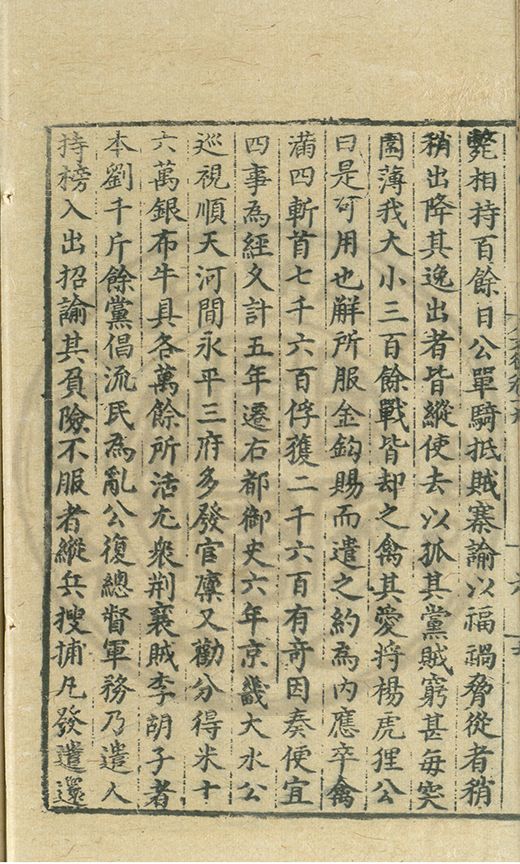 斃相持百餘日公單騎抵賊寨諭以福禍脅從者稍
稍出降其逸出者皆縱使去以孤其黨賊窮甚每突
圍薄我大小三百餘戰皆却之禽其愛將楊虎狸公
曰是可用也解所服金鉤賜而遣之約為內應卒禽
滿四斬首七千六百俘獲二千六百有奇因奏便宜
四事為經久計五年遷右都御史六年京畿大水公
巡視順天河間永平三府多發官廪又勸分得米十
六萬銀布牛具各萬餘所活尤衆荆襄賊李胡子者
本劉千斤餘黨倡流民為亂公復總督軍務乃遣人
持榜入出招諭其負險不服者縱兵搜捕凡發遣還